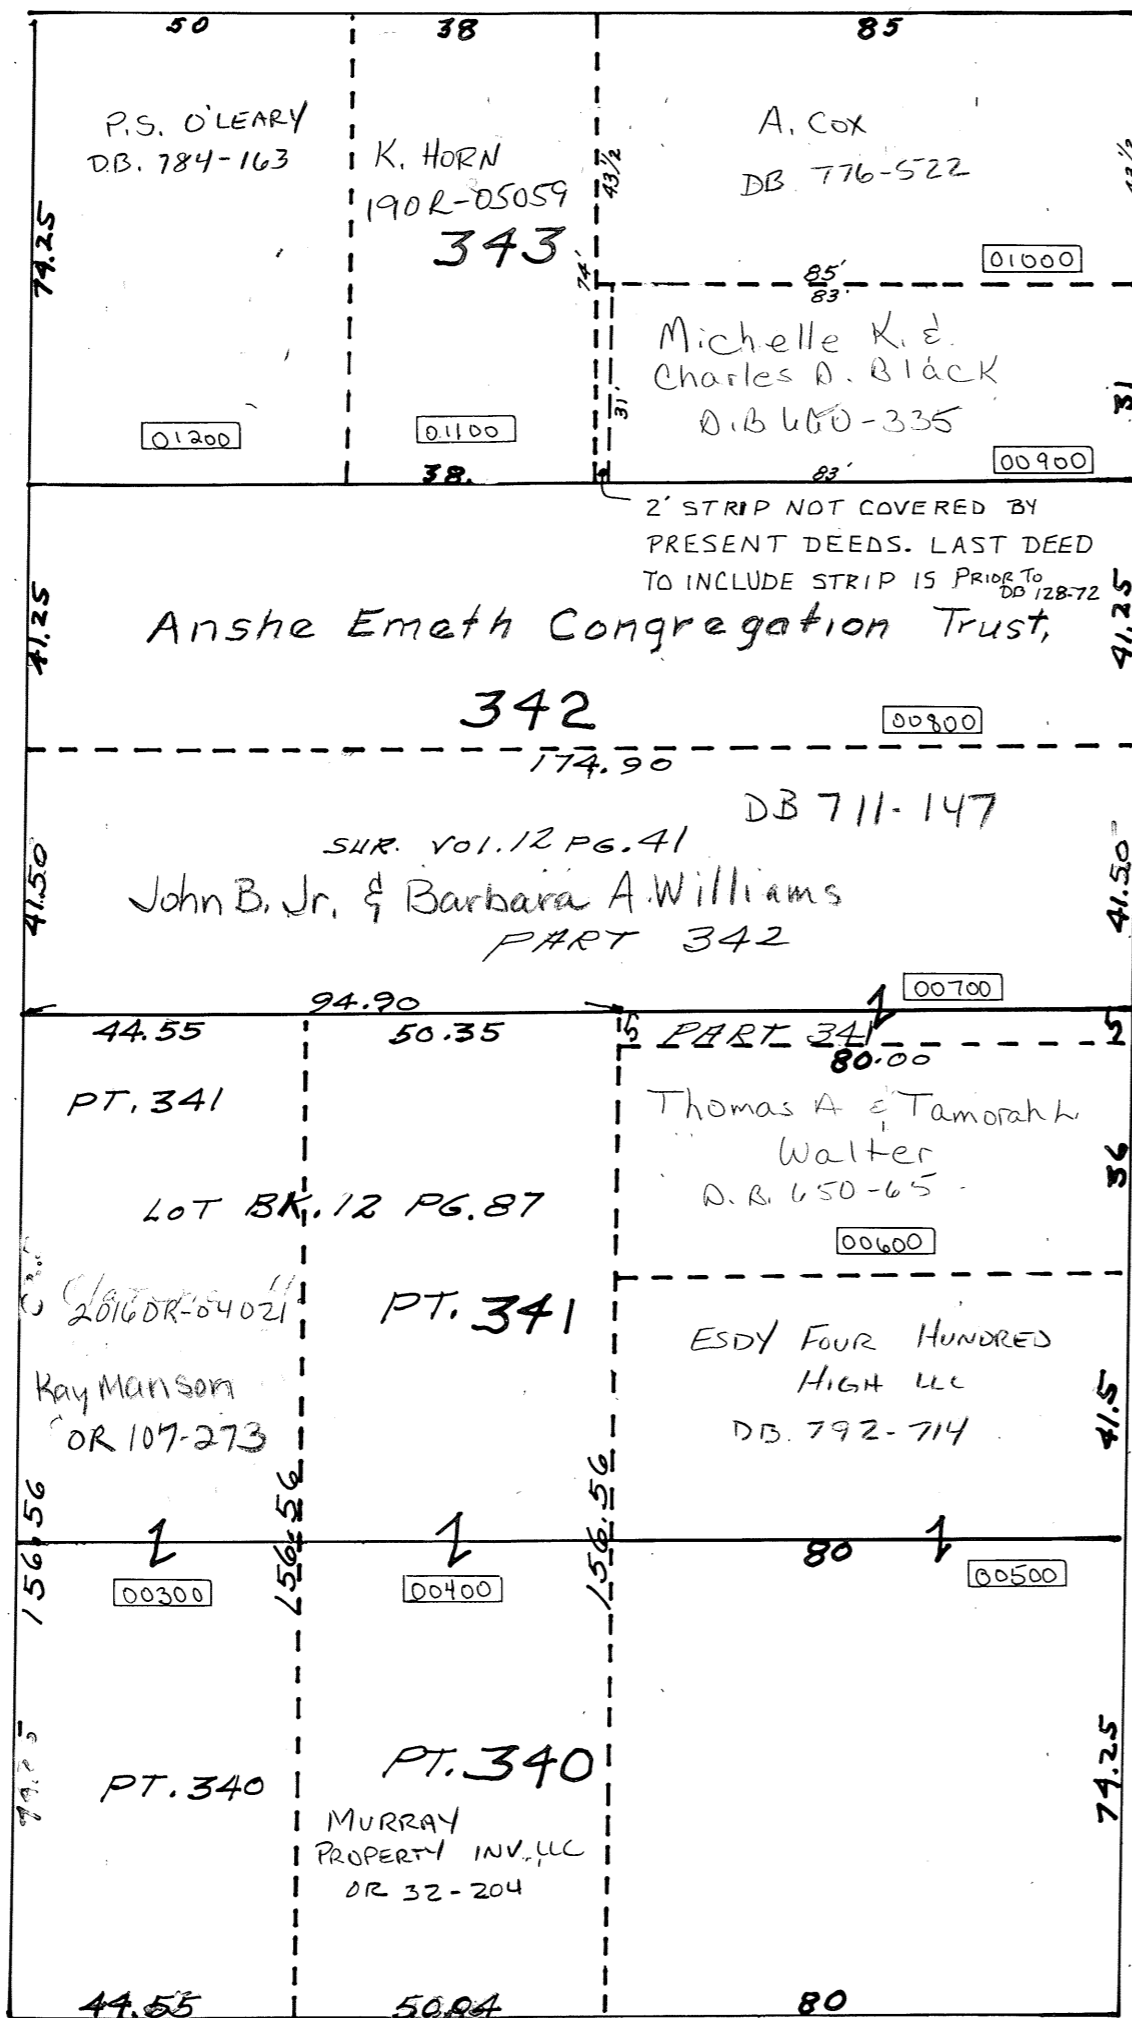 50 38 85
P.S. O'LEARY
D.B. 784-163
K. HORN
190R-05059
343
A. COX
DB 776-522
43 1/2
43 1/2
74.25
74'
01000
85'
83'
Michelle K. &
Charles D. Black
31'
31
01200
01100
00900
38.
83'
2' STRIP NOT COVERED BY
PRESENT DEEDS. LAST DEED
TO INCLUDE STRIP IS PRIOR TO
DB 128-72
41.25
41.25
Anshe Emeth Congregation Trust,
342
00800
174.90
DB 711-147
SUR. VOl.12 PG.41
41.50
41.50
John B. Jr. & Barbara A. Williams
PART 342
00700
94.90
44.55 50.35
5 PART 341 5
80.00
PT. 341
Thomas A & Tamorah L
Walter
D.B. 650-65
36
LOT BK. 12 PG. 87
00600
2016OR-04021
PT. 341
ESDY FOUR HUNDRED
HIGH LLC
DB. 792-714
41.5
Kay Manson
OR 107-273
156.56
156.56
156.56
80
00300
00400
00500
PT. 340
PT. 340
74.25
MURRAY
PROPERTY INV. LLC
OR 32-204
44.55 80